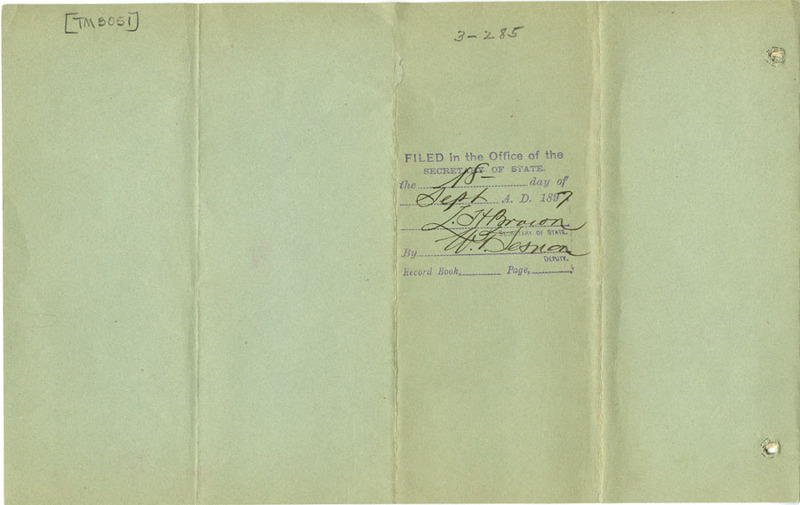 [TM5051]
3-285
FILED in the Office of the
SECRETARY OF STATE.
the 18- day of
Sept A. D. 1897
SECRETARY OF STATE.
By
DEPUTY.
Record Book, Page,